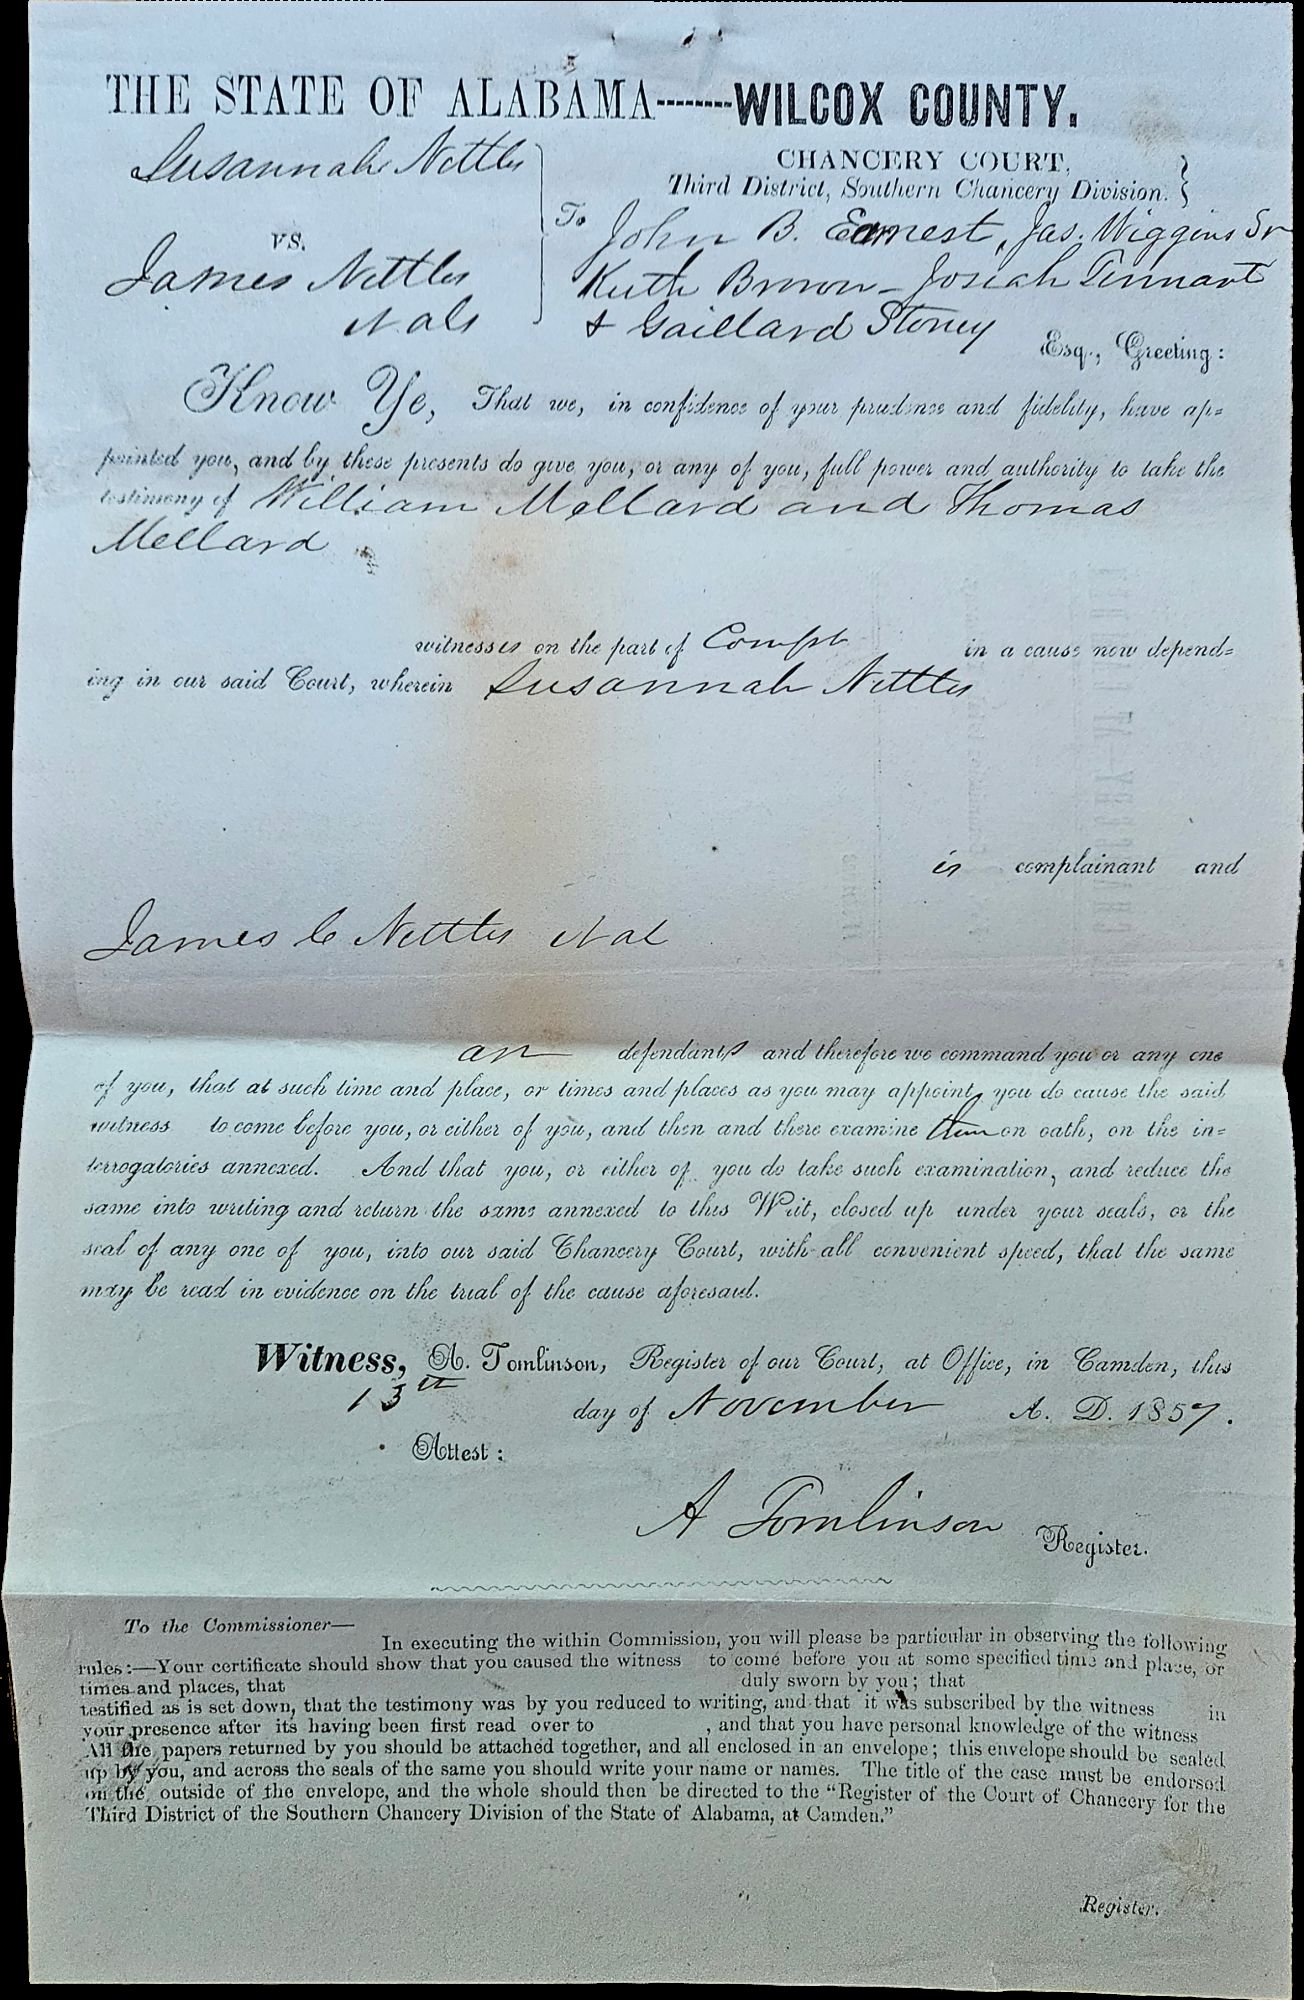 THE STATE OF ALABAMA--------WILCOX COUNTY.
Susannah Nettles
vs.
James Nettles
et als
CHANCERY COURT,
Third District, Southern Chancery Division.
To John B. Earnest, Jas. Wiggins Sr
Keith Brown - Josiah Tennant
& Gaillard Stoney
Esq., Greeting:
Know Ye, That we, in confidence of your prudence and fidelity, have ap=
pointed you, and by these presents do give you, or any of you, full power and authority to take the
testimony of William Mellard and Thomas
Mellard
witnesses on the part of Compt in a cause now depend=
ing in our said Court, wherein Susannah Nettles
is complainant and
James C Nettles et al
are defendants and therefore we command you or any one
of you, that at such time and place, or times and places as you may appoint, you do cause the said
witness to come before you, or either of you, and then and there examine them on oath, on the in=
terrogatories annexed. And that you, or either of you do take such examination, and reduce the
same into writing and return the same annexed to this Writ, closed up under your seals, or the
seal of any one of you, into our said Chancery Court, with all convenient speed, that the same
may be read in evidence on the trial of the cause aforesaid.
Witness, A. Tomlinson, Register of our Court, at Office, in Camden, this
13th day of November A. D. 1857.
Attest:
A Tomlinson Register.
To the Commissioner—
In executing the within Commission, you will please be particular in observing the following
rules:—Your certificate should show that you caused the witness to come before you at some specified time and place, or
times and places, that duly sworn by you; that
testified as is set down, that the testimony was by you reduced to writing, and that it was subscribed by the witness in
your presence after its having been first read over to , and that you have personal knowledge of the witness
All the papers returned by you should be attached together, and all enclosed in an envelope; this envelope should be sealed
up by you, and across the seals of the same you should write your name or names. The title of the case must be endorsed
on the outside of the envelope, and the whole should then be directed to the "Register of the Court of Chancery for the
Third District of the Southern Chancery Division of the State of Alabama, at Camden."
Register.